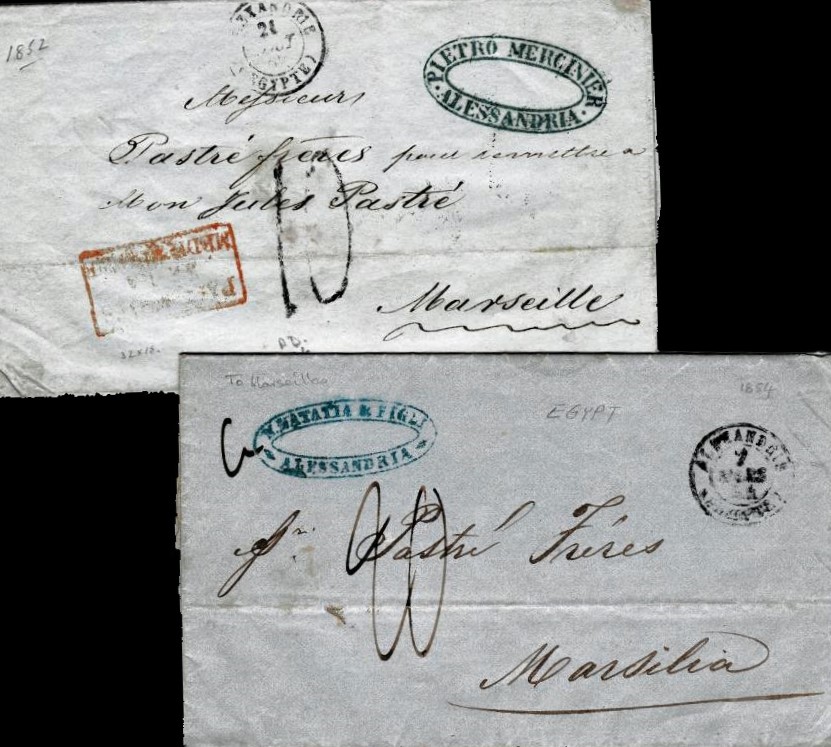 1852
ALEXANDRIE
21
(EGYPTE)
PIETRO MERCINIER
ALESSANDRIA
Messieurs
Pastré frères pour remettre a
Mon Jules Pastré
10
Marseille
32x18.
PD.
To Marseilles
1854
EGYPT
N. NATATIA & FIGLI
ALESSANDRIA
ALEXANDRIE
7
MARS
54
(EGYPTE)
Pastré Fréres
Marsilia